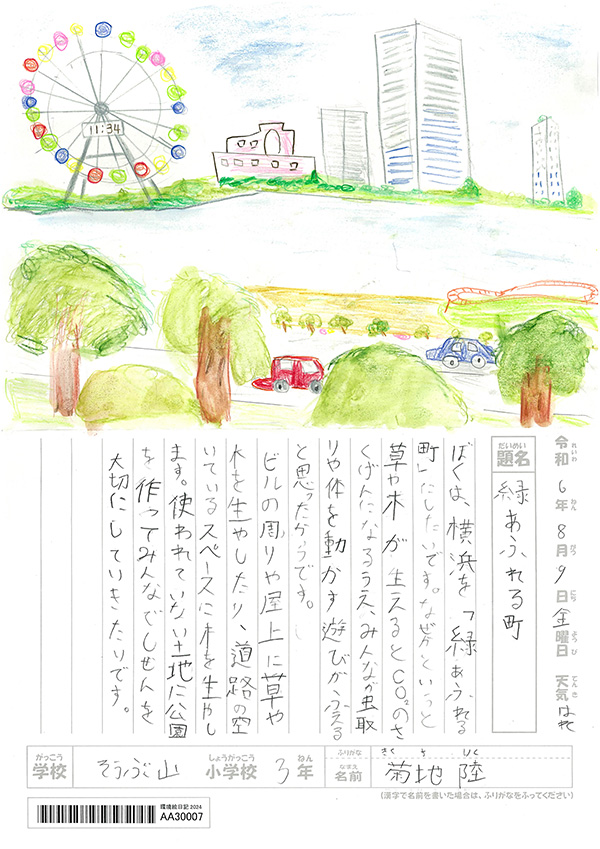 11:34
令和6年8月9日金曜日 天気 はれ
れいわ ねん がつ にち ようび てんき
だいめい
題名
緑あふれる町
ぼくは、横浜を「緑あふれる
町」にしたいです。なぜかというと
草や木が生えるとCO2のさ
くげんになるうえ、みんなが虫取
りや体を動かす遊びがふえる
と思ったからです。
ビルの周りや屋上に草や
木を生やしたり、道路の空
いているスペースに木を生やし
ます。使われていない土地に公園
を作ってみんなでしぜんを
大切にしていきたいです。
がっこう しょうがっこう ねん
学校 そうぶ山 小学校 3年
ふりがな きくち りく
なまえ
名前 菊地 陸
(漢字で名前を書いた場合は、ふりがなをふってください)
環境絵日記2024
AA30007